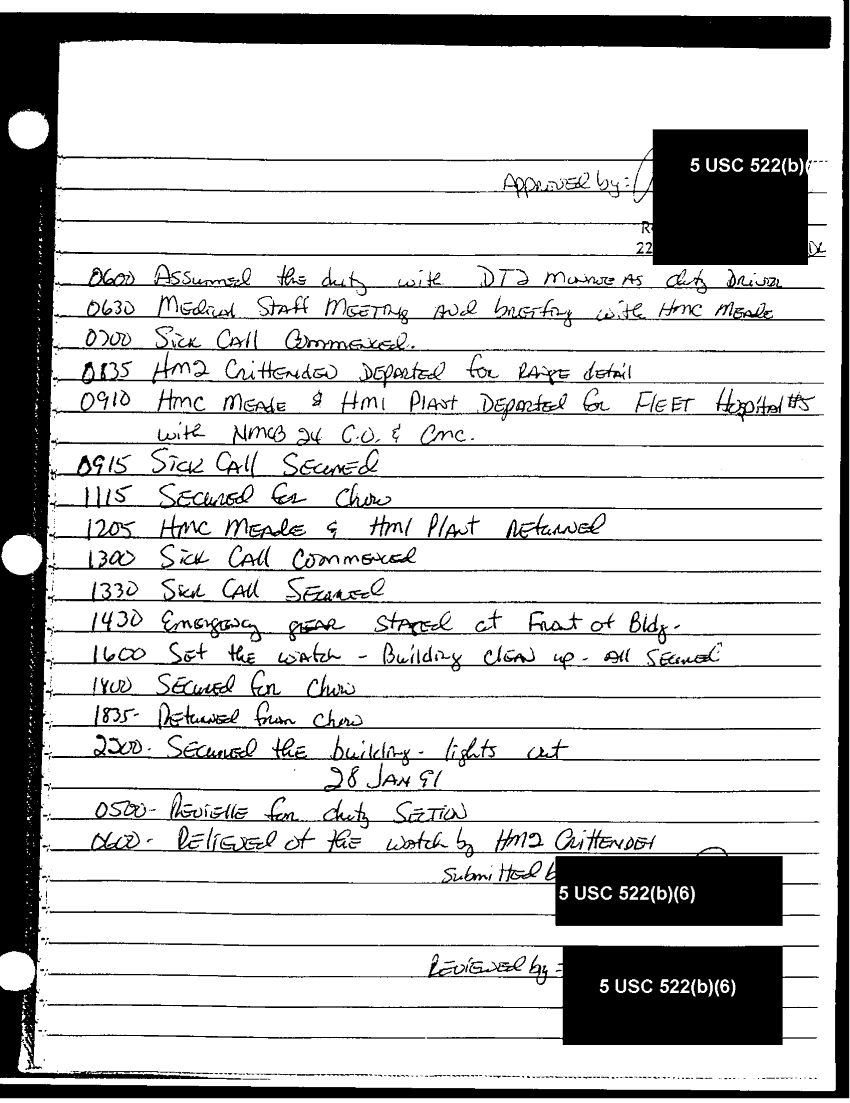 5 USC 522(b)(
Approved by:
R
22
0600 Assumed the duty with DT2 Munroe As duty Driver
0630 Medical Staff Meeting And briefing with HMC Meade
0700 Sick Call Commenced.
0835 HM2 Crittenden Departed for Range detail
0910 HMC Meade & HM1 Plant Departed for Fleet Hospital #5
with NMCB 24 C.O. & CMC.
0915 Sick Call Secured
1115 Secured for Chow
1205 HMC Meade & HM1 Plant Returned
1300 Sick Call Commenced
1330 Sick Call Secured
1430 Emergency gear Staged at Front of Bldg.
1600 Set the watch - Building clean up - All Secured
1800 Secured for Chow
1835- Returned from Chow
2200- Secured the building - lights out
28 Jan 91
0500- Revielle for duty Section
0600- Relieved of the watch by HM2 Crittenden
Submitted b
5 USC 522(b)(6)
Reviewed by =
5 USC 522(b)(6)